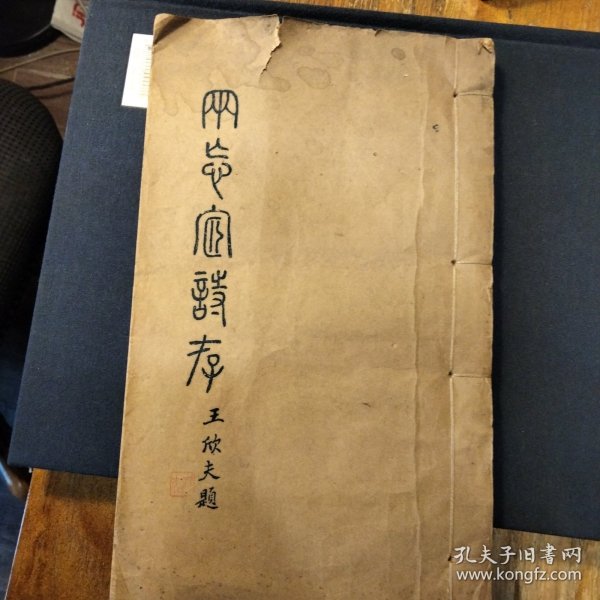 兩忘宧詩存
王欣夫題
孔夫子旧书网
www.kongfz.com